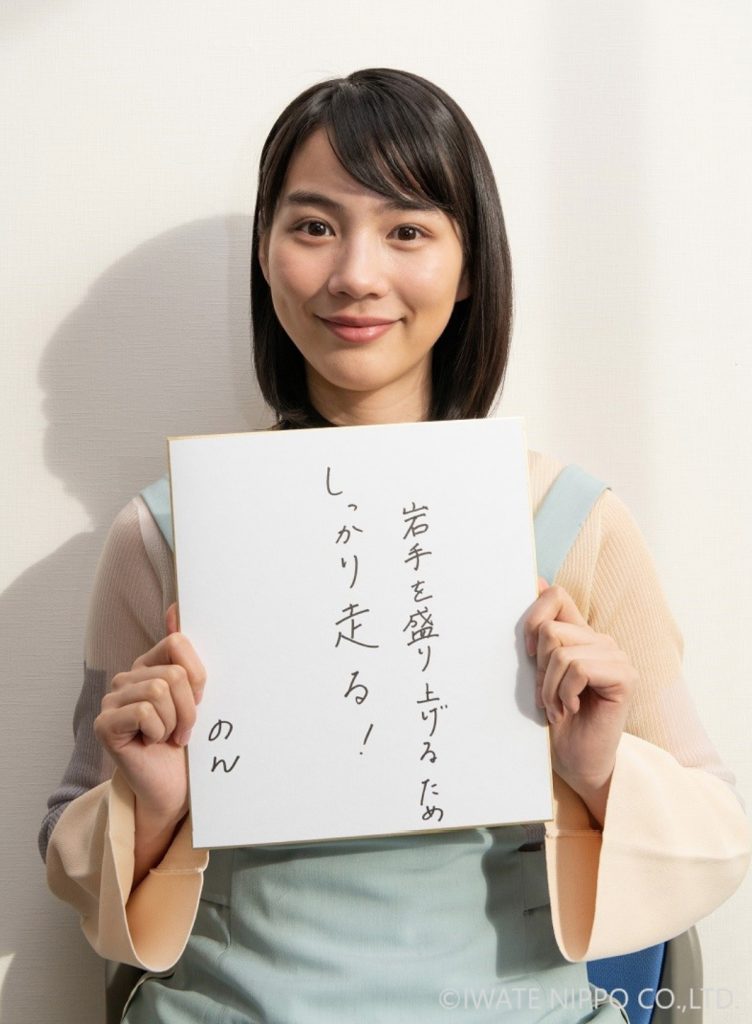 岩手を盛り上げるため
しっかり走る!
のん
©IWATE NIPPO CO.,LTD.